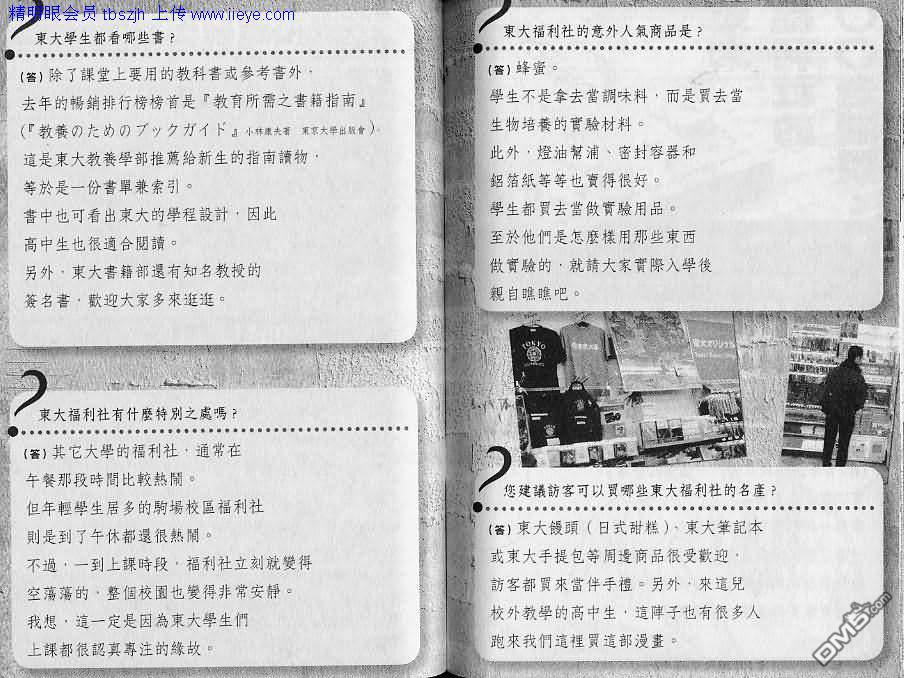 精明眼会员 tbszjh 上传 www.iieye.com
東大學生都看哪些書？
(答)除了課堂上要用的教科書或參考書外，
去年的暢銷排行榜榜首是『教育所需之書籍指南』
(『教養のためのブックガイド』小林康夫著 東京大學出版會)。
這是東大教養學部推薦給新生的指南讀物，
等於是一份書單兼索引。
書中也可看出東大的學程設計，因此
高中生也很適合閱讀。
另外，東大書籍部還有知名教授的
簽名書，歡迎大家多來逛逛。
東大福利社有什麼特別之處嗎？
(答)其它大學的福利社，通常在
午餐那段時間比較熱鬧。
但年輕學生居多的駒場校區福利社
則是到了午休都還很熱鬧。
不過，一到上課時段，福利社立刻就變得
空蕩蕩的，整個校園也變得非常安靜。
我想，這一定是因為東大學生們
上課都很認真專注的緣故。
東大福利社的意外人氣商品是？
(答)蜂蜜。
學生不是拿去當調味料，而是買去當
生物培養的實驗材料。
此外，燈油幫浦、密封容器和
鋁箔紙等等也賣得很好。
學生都買去當做實驗用品。
至於他們是怎麼樣用那些東西
做實驗的，就請大家實際入學後
親自瞧瞧吧。
TOKYO
東大オリジナル
您建議訪客可以買哪些東大福利社的名產？
(答)東大饅頭（日式甜糕）、東大筆記本
或東大手提包等周邊商品很受歡迎，
訪客都買來當伴手禮。另外，來這兒
校外教學的高中生，這陣子也有很多人
跑來我們這裡買這部漫畫。
DM5.com